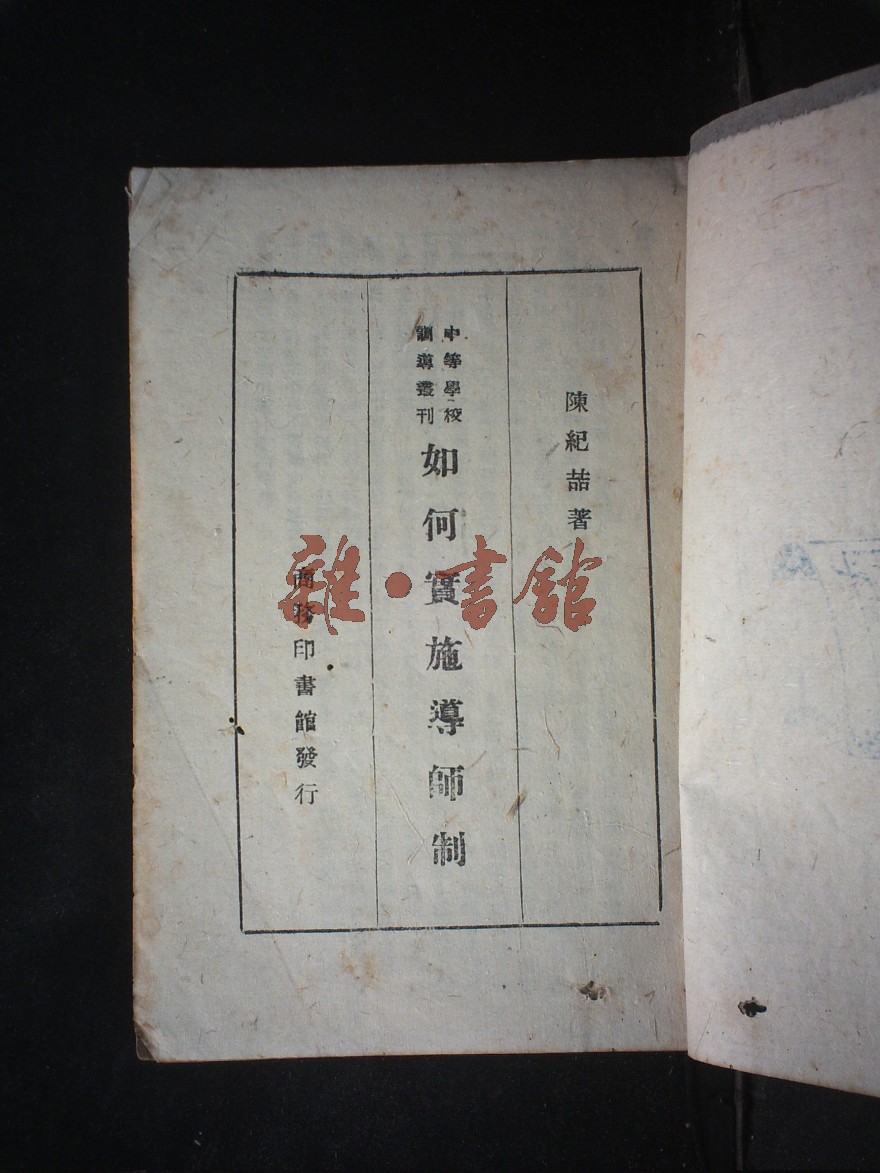 陳紀喆著
中等學校
訓導叢刊
如何實施導師制
商務印書館發行
雜·書館